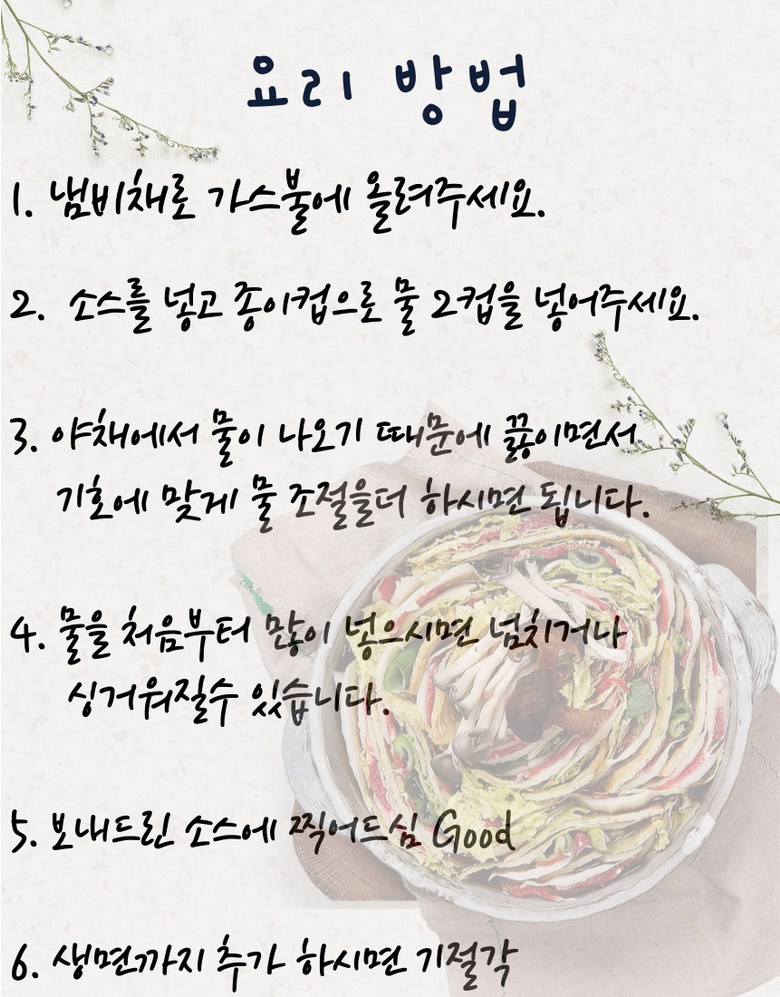 요리 방법
1. 냄비채로 가스불에 올려주세요.
2. 소스를 넣고 종이컵으로 물 2컵을 넣어주세요.
3. 야채에서 물이 나오기 때문에 끓이면서
기호에 맞게 물 조절을더 하시면 됩니다.
4. 물을 처음부터 많이 넣으시면 넘치거나
싱거워질수 있습니다.
5. 보내드린 소스에 찍어드심 Good
6. 생면까지 추가 하시면 기절각